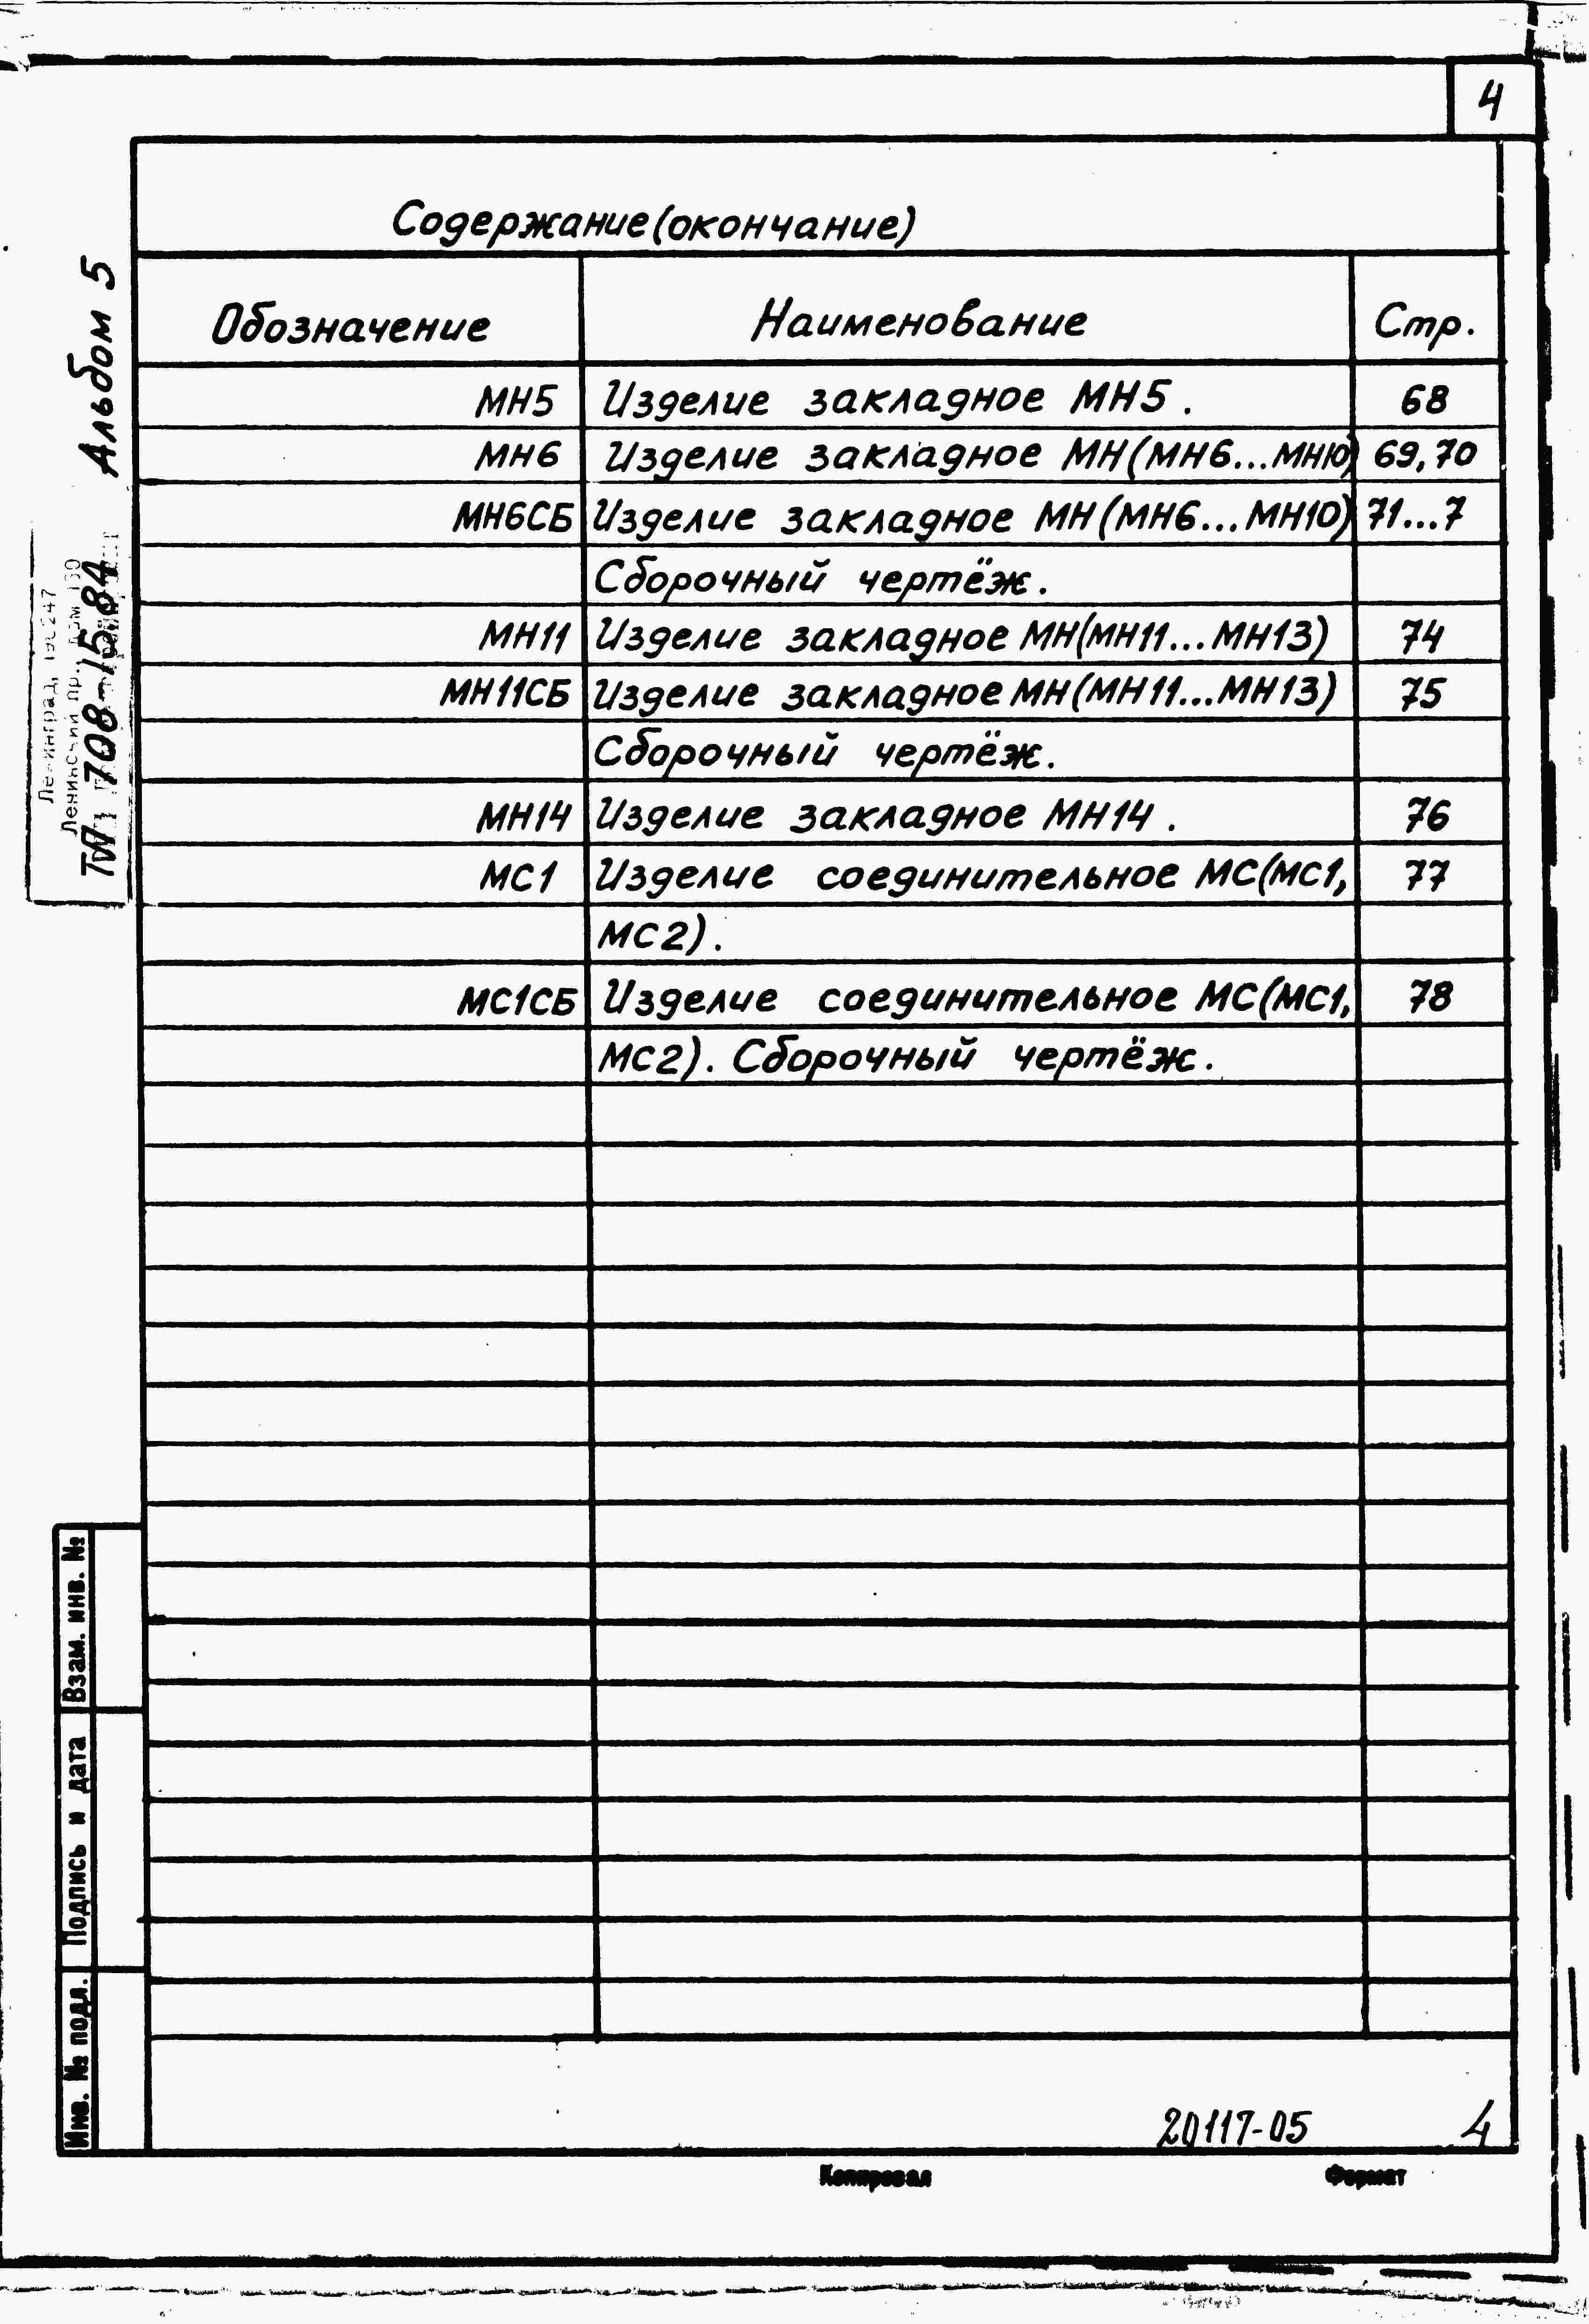 4
Содержание (окончание)
Обозначение Наименование Стр.
МН5 Изделие закладное МН5. 68
МН6 Изделие закладное МН(МН6...МН10) 69,70
МН6СБ Изделие закладное МН(МН6...МН10) 71...7
Сборочный чертёж.
МН11 Изделие закладное МН(МН11...МН13) 74
МН11СБ Изделие закладное МН(МН11...МН13) 75
Сборочный чертёж.
МН14 Изделие закладное МН14. 76
МС1 Изделие соединительное МС(МС1, 77
МС2).
МС1СБ Изделие соединительное МС(МС1, 78
МС2). Сборочный чертёж.
Альбом 5
708-15.84
Взам. инв. №
Подпись и дата
Инв. № подл.
20117-05 4
Копировал Формат